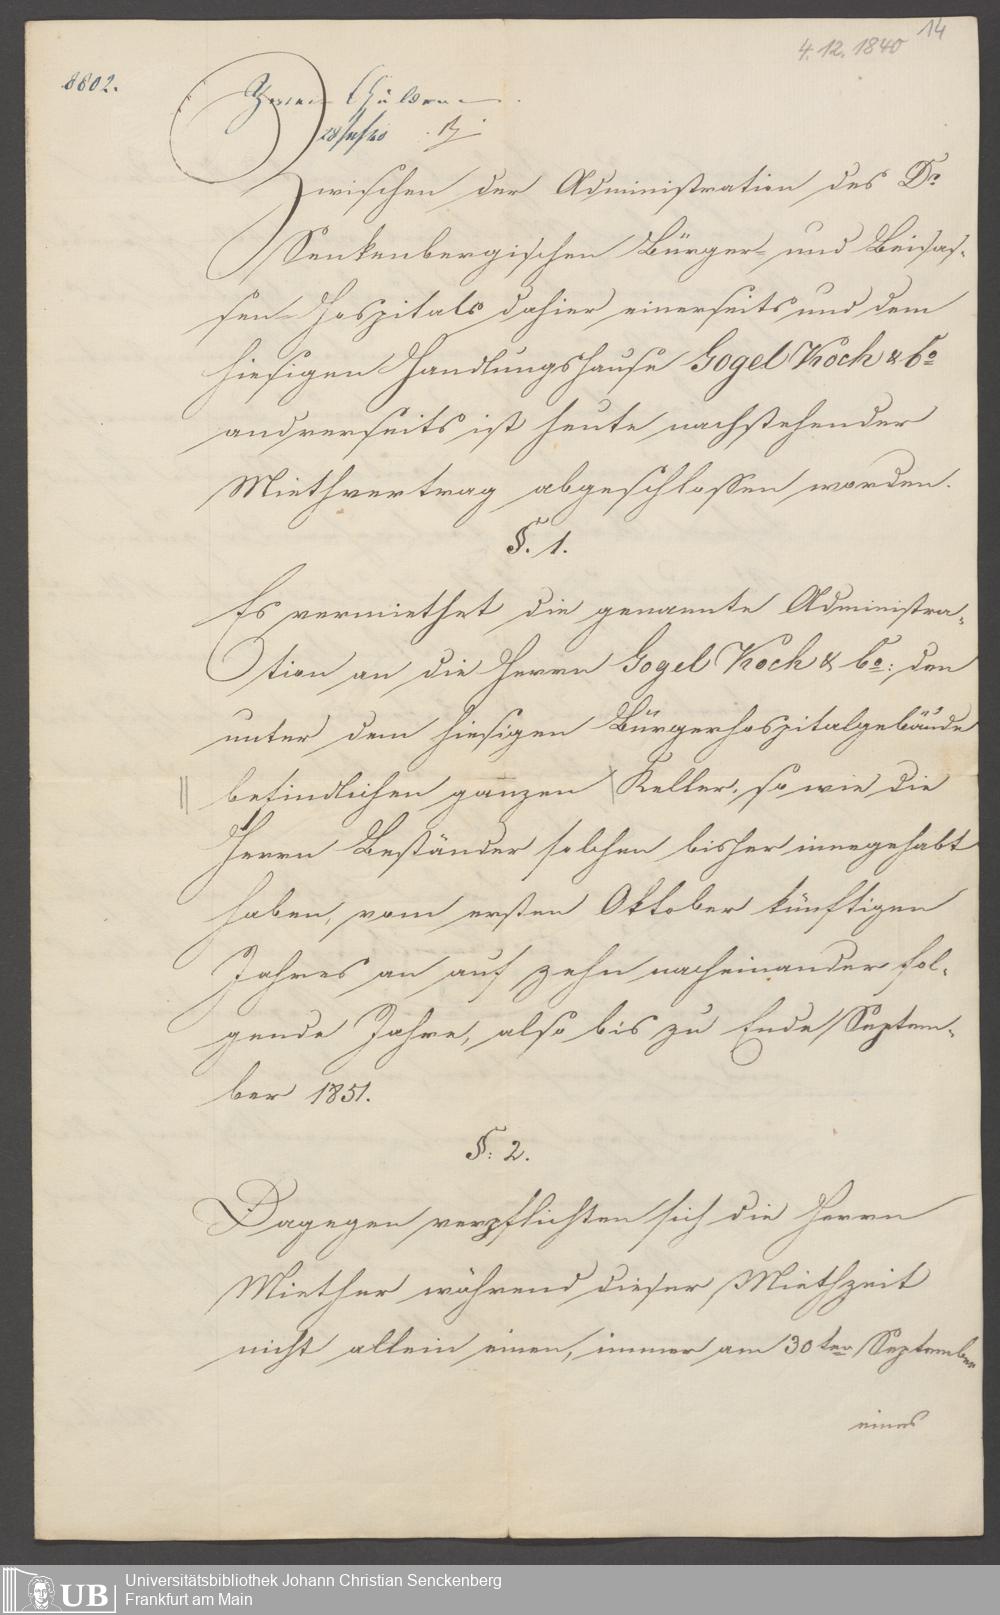 14
4.12.1840
8802.
28/11/40
Zwischen der Administration des Dr
Senkenbergischen Bürger- und Beisas-
sen-Hospitals dahier einerseits und dem
hiesigen Handlungshause Gogel Koch & Co
andrerseits ist heute nachstehender
Miethvertrag abgeschlossen worden.
§. 1.
Es vermiethet die genannte Administra-
tion an die Herrn Gogel Koch & Co: den
unter dem hiesigen Bürgerhospitalgebäude
befindlichen ganzen Keller, so wie die
Herrn Beständer solchen bisher innegehabt
haben, vom ersten Oktober künftigen
Jahres an auf zehn nacheinander fol-
gende Jahre, also bis zu Ende Septem-
ber 1851.
§. 2.
Dagegen verpflichten sich die Herrn
Miether während dieser Miethzeit
nicht allein einen, immer am 30ten September
eines
UB
Universitätsbibliothek Johann Christian Senckenberg
Frankfurt am Main